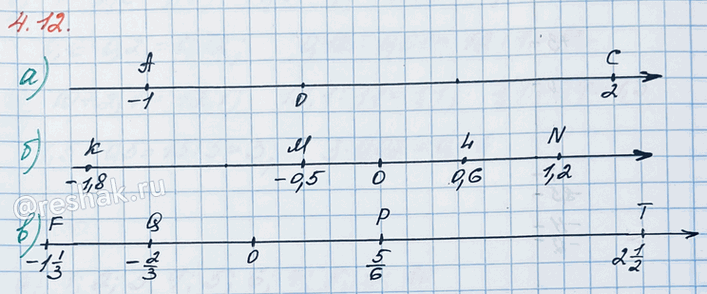 4.12.
а) A C
-1 0 2
б) K M L N
-1,8 -0,5 0 0,6 1,2
©reshak.ru
в) F Q P T
-1 1/3 -2/3 0 5/6 2 1/2